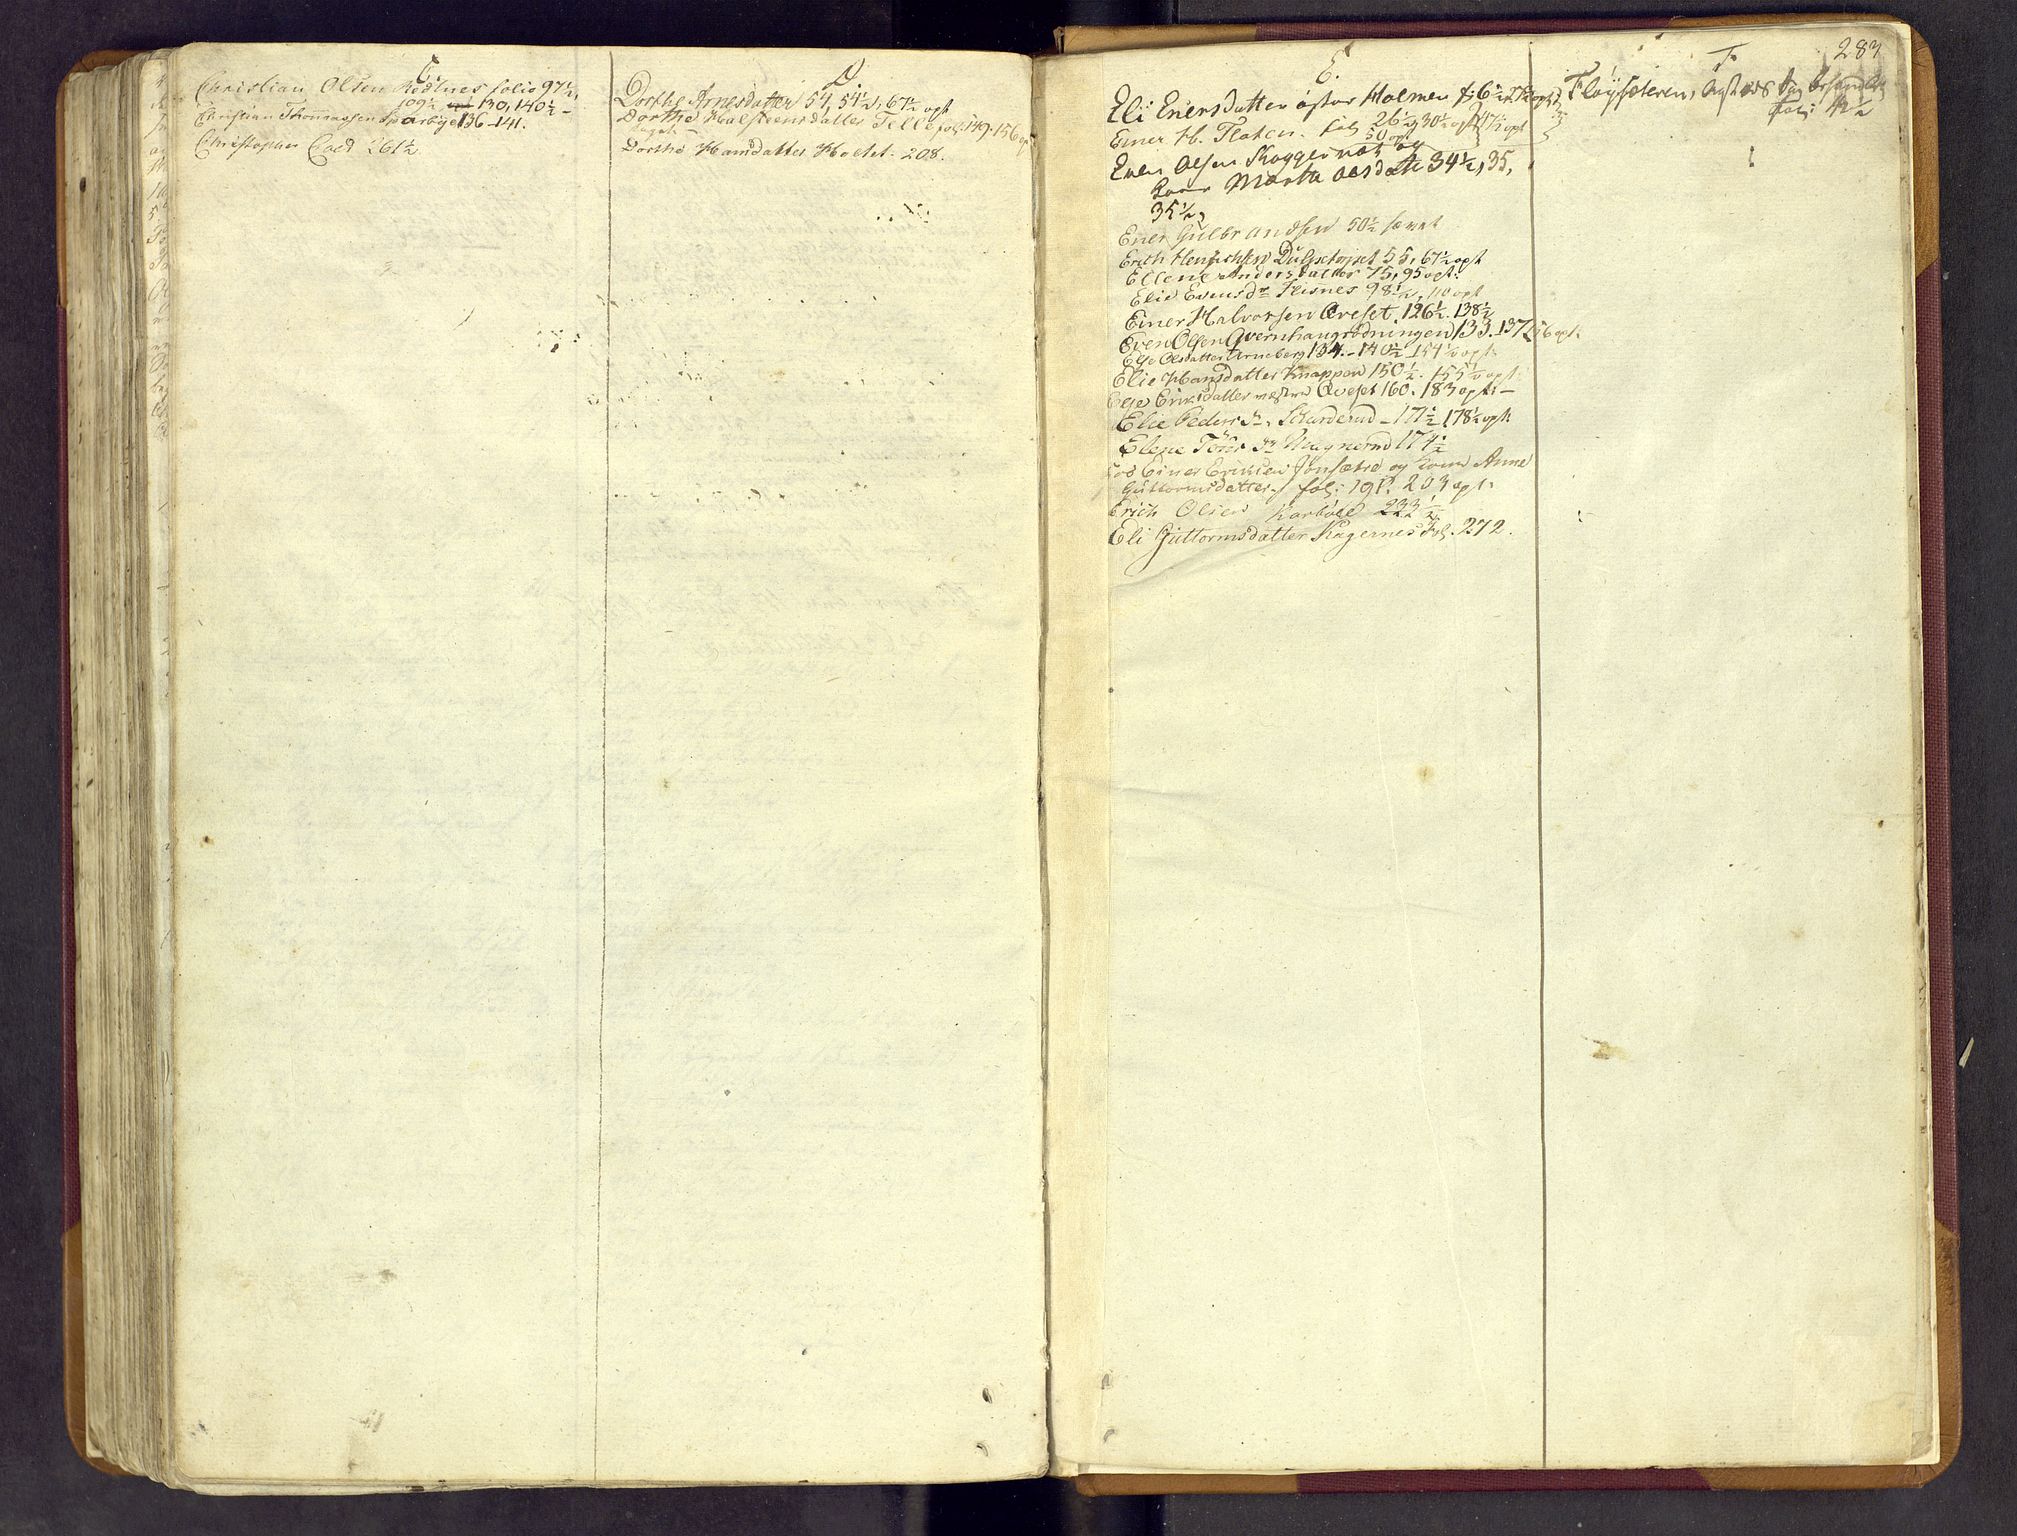 C.
Christian Olsen Rødlnes folio 97½,
109½ 130, 140½ –
Christian Thomassen Sparbye 136–141.
Christopher Coed 261½
D.
Dorthe Arnesdatter 54, 54½, 67½ opt
Dorthe Halstensdatter Telle fol: 149. 156 op
Dorthe Hansdatter Holtet. 208.
E.
Eli Enersdatter østre Holmen f: 6½, 27½ opt
Ener H. Floten. fol 26½, 30½ opt 47½ opt
50 opt
Even Olsen Skogger og
Kone Marta Olsdatt 34½, 35,
35½,
Ener Gulbrandsen 50½
Erich Henrichsen 55, 67½ opt
Ellene Andersdatter 75, 95 opt:
Elie Evensdr Flisnes 98½, 110 opt
Einer Halvorsen Qveset. 126½. 138½
Even Olsen Qvernhaugrødningen 133. 137 156 opt.
Else Olsdatter Arneberg 134. – 140½ 154½ opt:
Elie Hansdatter Knappen 150½. 155½ opt:
Else Eriksdatter Qveset 160. 183 opt: –
Elie Peders Dr. Skarderud – 171½ 178½ opt:
Elene Tører Dr Magnerud 174½
Einer Eriksen Jonsætre og Kone Anne
Guttormsdatter fol: 191. 203 opt:
Erich Olsen Karbøle 233½
Eli Guttormsdatter Kagernes Fol. 272.
F.
283
Fløysæteren,
fol: